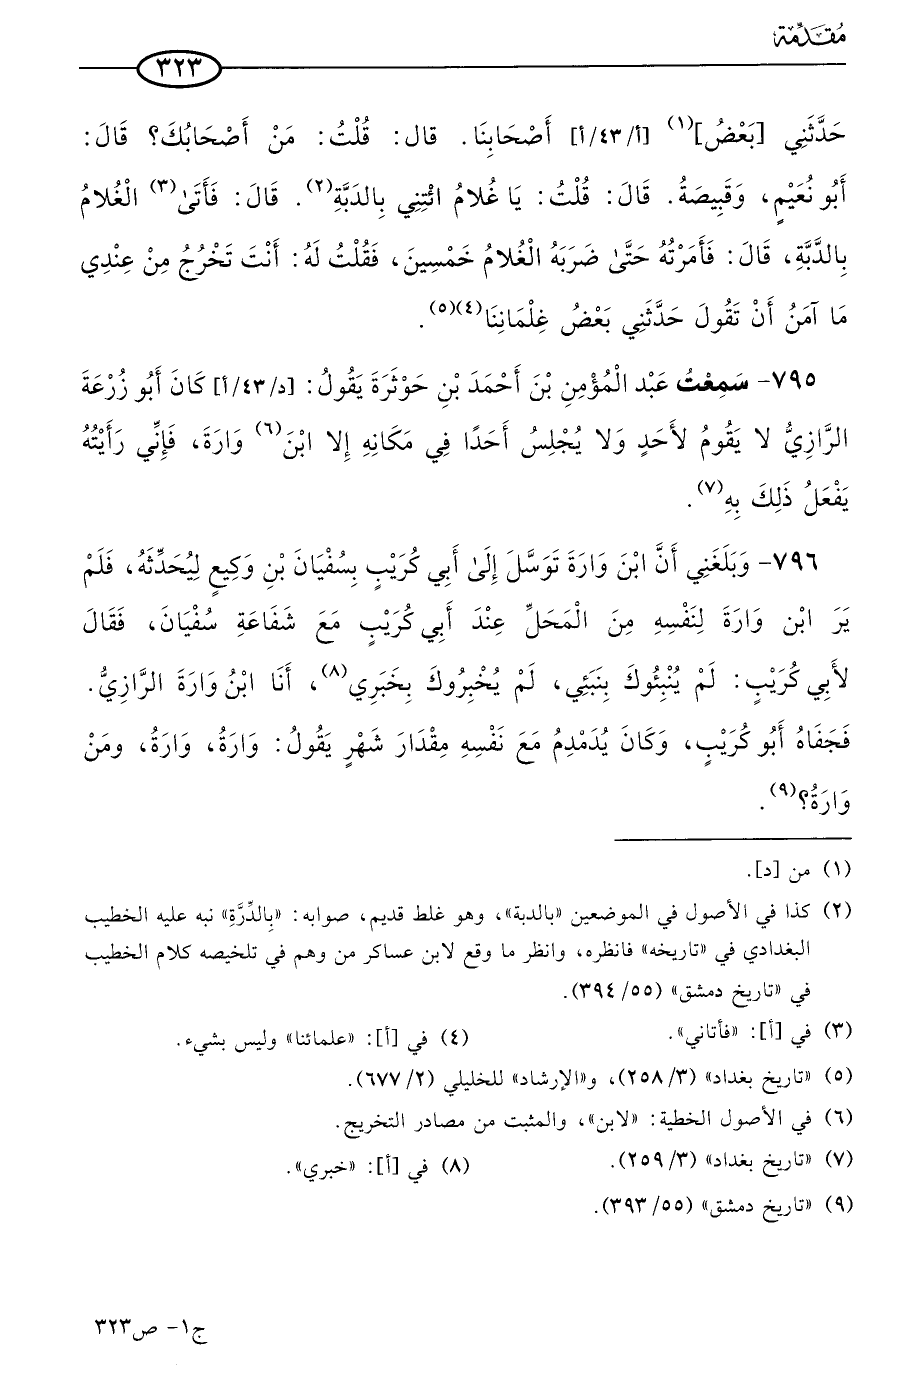 مُقَدِّمَة
٣٢٣
حَدَّثَنِي [بَعْضُ]⁽١⁾ [أ/٤٣/أ] أَصْحَابِنَا. قال: قُلْتُ: مَنْ أَصْحَابُكَ؟ قَالَ:
أَبُو نُعَيْمٍ، وَقَبِيصَةُ. قَالَ: قُلْتُ: يَا غُلامُ ائْتِنِي بِالدَبَّةِ⁽٢⁾. قَالَ: فَأَتَىٰ⁽٣⁾ الْغُلامُ
بِالدَّبَّةِ، قَالَ: فَأَمَرْتُهُ حَتَّىٰ ضَرَبَهُ الْغُلامُ خَمْسِينَ، فَقُلْتُ لَهُ: أَنْتَ تَخْرُجُ مِنْ عِنْدِي
مَا آمَنُ أَنْ تَقُولَ حَدَّثَنِي بَعْضُ غِلْمَانِنَا⁽٤⁾⁽٥⁾.
٧٩٥- سَمِعْتُ عَبْد الْمُؤْمِنِ بْنَ أَحْمَدَ بْنِ حَوْثَرَةَ يَقُولُ: [د/٤٣/أ] كَانَ أَبُو زُرْعَةَ
الرَّازِيُّ لا يَقُومُ لأَحَدٍ وَلا يُجْلِسُ أَحَدًا فِي مَكَانِهِ إِلا ابْنَ⁽٦⁾ وَارَةَ، فَإِنِّي رَأَيْتُهُ
يَفْعَلُ ذَلِكَ بِهِ⁽٧⁾.
٧٩٦- وَبَلَغَنِي أَنَّ ابْنَ وَارَةَ تَوَسَّلَ إِلَىٰ أَبِي كُرَيْبٍ بِسُفْيَانَ بْنِ وَكِيعٍ لِيُحَدِّثَهُ، فَلَمْ
يَرَ ابْن وَارَةَ لِنَفْسِهِ مِنَ الْمَحَلِّ عِنْدَ أَبِي كُرَيْبٍ مَعَ شَفَاعَةِ سُفْيَانَ، فَقَالَ
لأَبِي كُرَيْبٍ: لَمْ يُنْبِئُوكَ بِنَبَئِي، لَمْ يُخْبِرُوكَ بِخَبَرِي⁽٨⁾، أَنَا ابْنُ وَارَةَ الرَّازِيُّ.
فَجَفَاهُ أَبُو كُرَيْبٍ، وَكَانَ يُدَمْدِمُ مَعَ نَفْسِهِ مِقْدَارَ شَهْرٍ يَقُولُ: وَارَةُ، وَارَةُ، ومَنْ
وَارَةُ؟⁽٩⁾.
(١) من [د].
(٢) كذا في الأصول في الموضعين «بالدبة»، وهو غلط قديم، صوابه: «بِالدِّرَّةِ» نبه عليه الخطيب
البغدادي في «تاريخه» فانظره، وانظر ما وقع لابن عساكر من وهم في تلخيصه كلام الخطيب
في «تاريخ دمشق» (٥٥/ ٣٩٤).
(٣) في [أ]: «فأتاني». (٤) في [أ]: «علمائنا» وليس بشيء.
(٥) «تاريخ بغداد» (٣/ ٢٥٨)، و«الإرشاد» للخليلي (٢/ ٦٧٧).
(٦) في الأصول الخطية: «لابن»، والمثبت من مصادر التخريج.
(٧) «تاريخ بغداد» (٣/ ٢٥٩). (٨) في [أ]: «خبري».
(٩) «تاريخ دمشق» (٥٥/ ٣٩٣).
ج١- ص٣٢٣